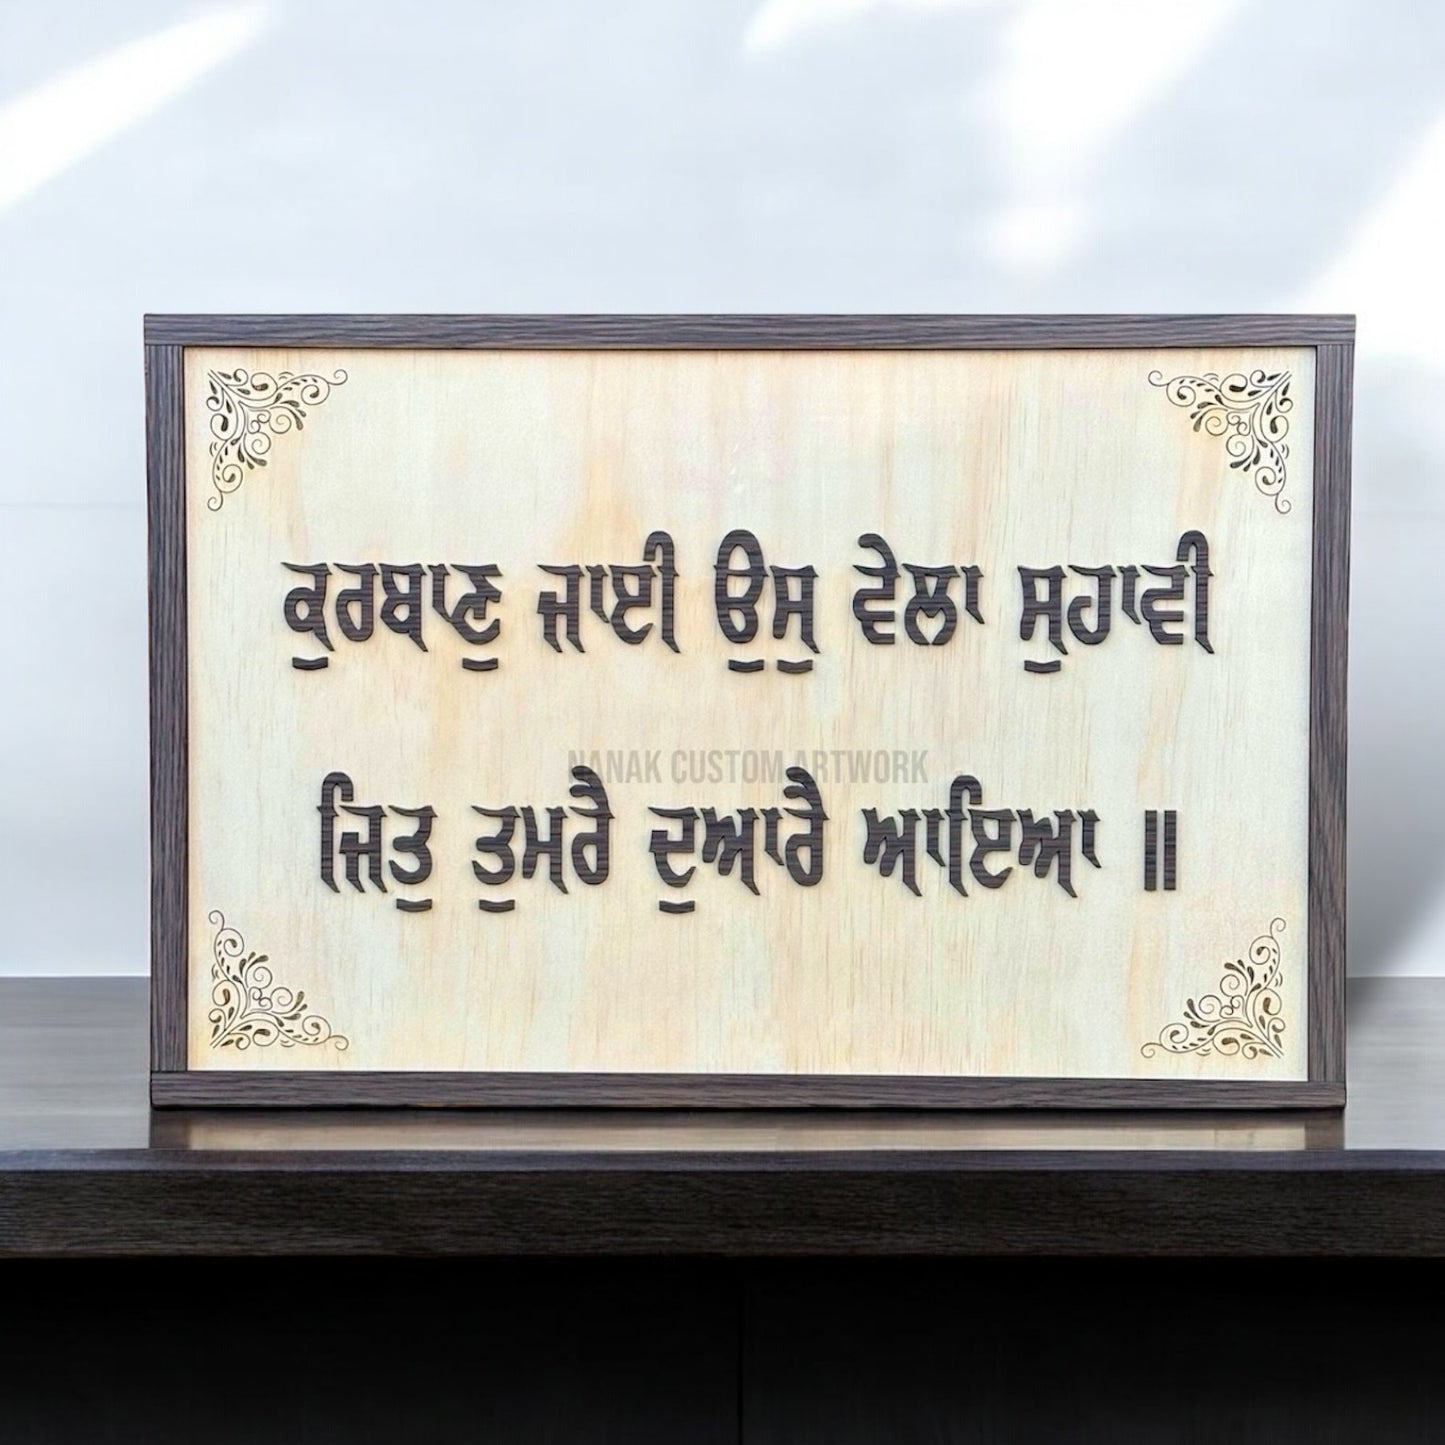 ਕੁਰਬਾਣੁ ਜਾਈ ਉਸੁ ਵੇਲਾ ਸੁਹਾਵੀ
NANAK CUSTOM ARTWORK
ਜਿਤੁ ਤੁਮਰੈ ਦੁਆਰੈ ਆਇਆ ॥